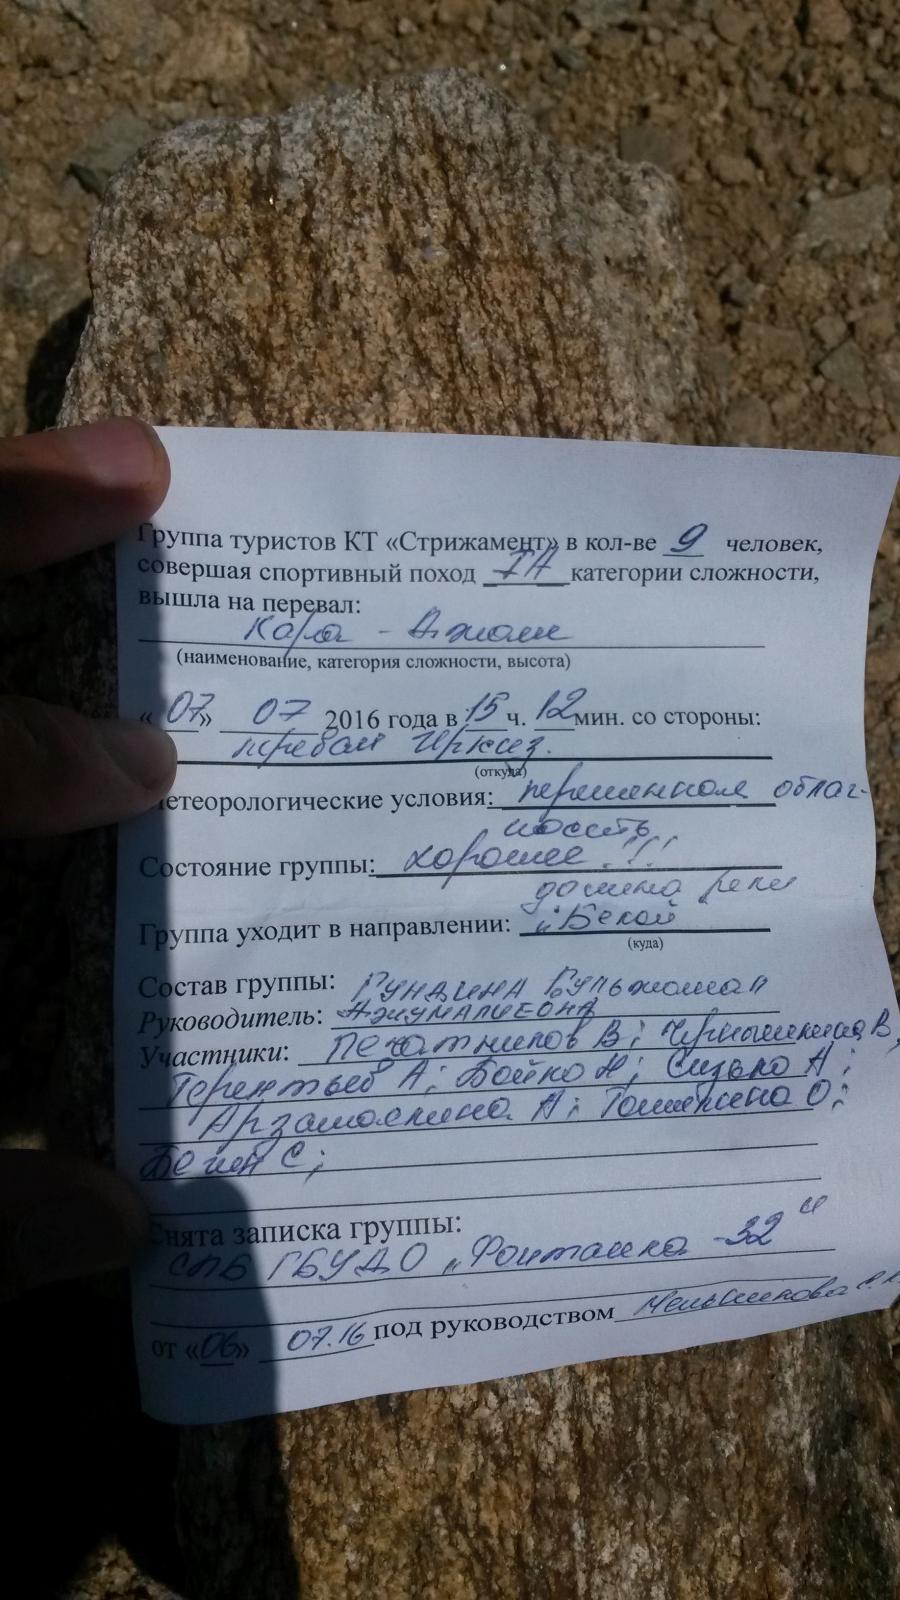 Группа туристов КТ «Стрижамент» в кол-ве 9 человек,
совершая спортивный поход категории сложности,
вышла на перевал:
Кара - Джоли
(наименование, категория сложности, высота)
« 07» 07 2016 года в 15 ч. 12 мин. со стороны:
перевал Иркиз.
(откуда)
Метеорологические условия: переменная облач-
ность
Состояние группы: хорошее !!!
долина реки
Группа уходит в направлении: "Белой
(куда)
Состав группы: Рундина
Руководитель:
Участники: Печатников В;
Терентьев А; Бойко Н; Сизько А;
Арзамаскина А; О;
Бегин С;
Снята записка группы:
СПБ ГБУДО „Фонтанка -32"
от «06» 07.16 под руководством Меньшикова